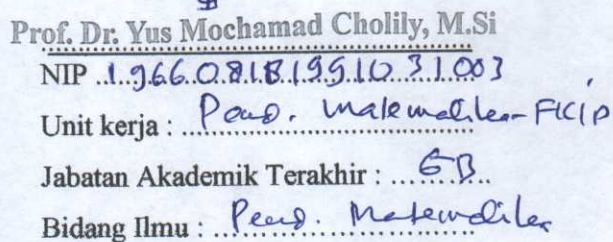 Prof. Dr. Yus Mochamad Cholily, M.Si
NIP 196608181991031003
Unit kerja : Pend. Matematika-FKIP
Jabatan Akademik Terakhir : GB
Bidang Ilmu : Pend. Matematika